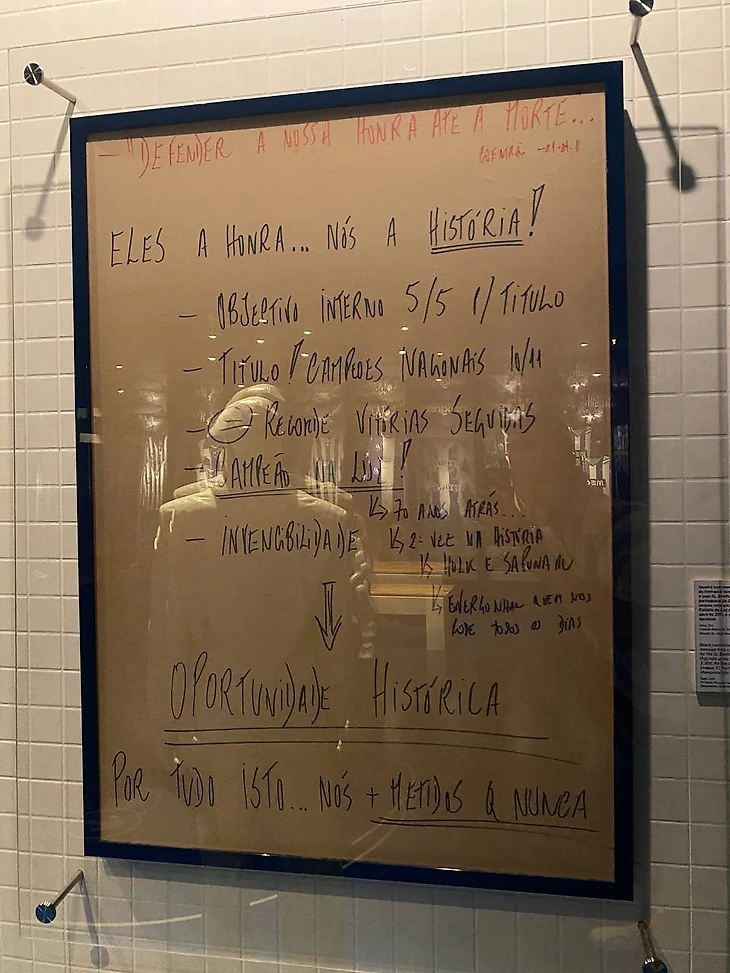 — "DEFENDER A NOSSA HONRA ATE A MORTE...
COENTRÃO
ELES A HONRA... NÓS A HISTÓRIA!
— OBJECTIVO INTERNO 5/5 P/TITULO
— TITULO! CAMPEÕES NACIONAIS 10/11
— = RECORDE VITÓRIAS SEGUIDAS
— CAMPEÃO NA LUZ!
↳ 70 ANOS ATRÁS...
— INVENCIBILIDADE
↳ 2ª VEZ NA HISTÓRIA
↳ HULK E SAPUNARU
↳ ENVERGONHAR QUEM NOS
FODE TODOS OS DIAS
⇓
OPORTUNIDADE HISTÓRICA
POR TUDO ISTO... NÓS + METIDOS Q NUNCA